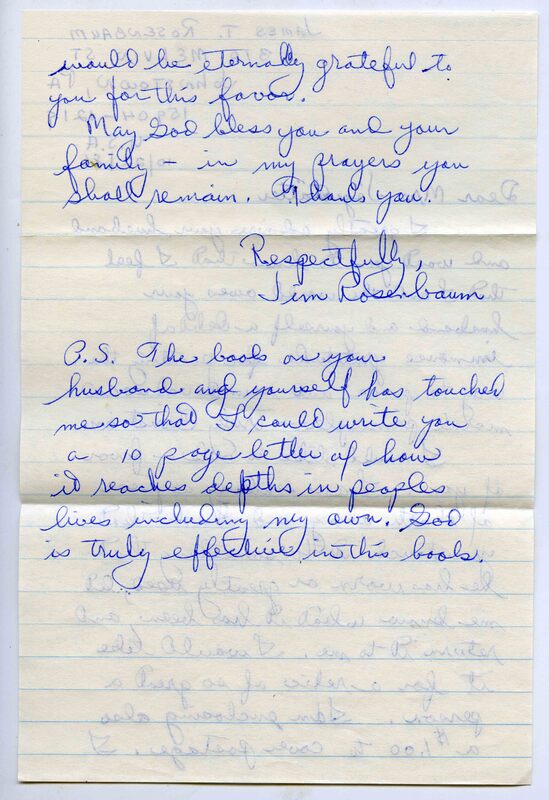 would be eternally grateful to
you for this favor.
May God bless you and your
family - in my prayers you
shall remain. Thank you.
Respectfully,
Jim Rosenbaum
P.S. The book on your
husband and yourself has touched
me so that I could write you
a 10 page letter of how
it reaches depths in peoples
lives including my own. God
is truly effective in this book.